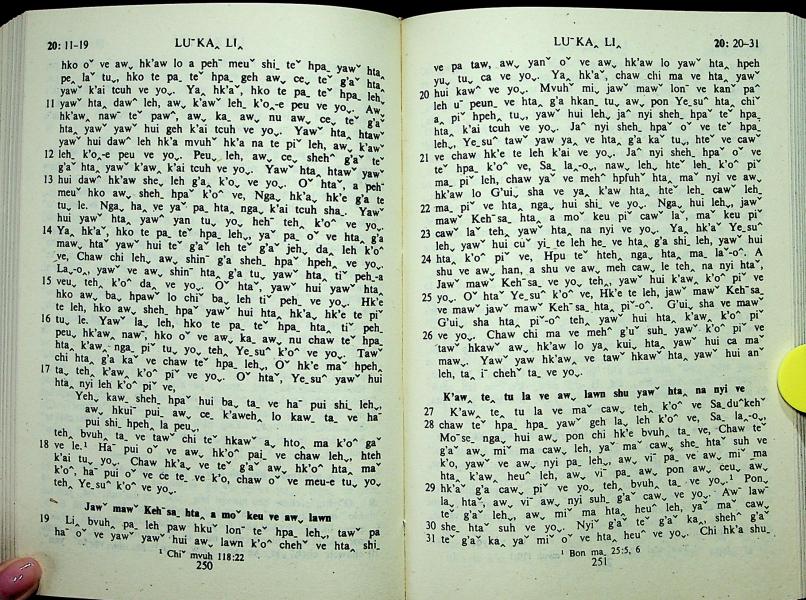 20: 11-19 LUˇKAˬ LIˬ
hko oˇ ve awˬ hk'aw lo a pehˉ meuˇ shiˍ teˇ hpaˬ yawˇ htaˬ
peˬ laˇ tuˬ, hko te pa teˇ hpaˬ geh awˬ ceˬ teˇ g'aˇ htaˬ
yawˇ k'ai tcuh ve yoˬ. Yaˬ hk'aˇ, hko te paˬ teˇ hpaˬ lehˬ
11 yawˇ htaˬ dawˆ leh, awˬ k'awˬ leh k'oˬ-e peu ve yoˬ. Awˬ
hk'aw, nawˉ teˇ pawˆ, awˬ ka awˬ nu awˬ ceˬ teˇ g'aˇ
htaˬ yawˇ yawˇ hui geh k'ai tcuh ve yoˬ. Yawˇ htaˬ htawˇ
yawˇ hta dawˆ leh hk'a mvuhˇ hk'a na te pi leh, awˬ k'aw
12 lehˬ k'oˬ-e peu ve yoˬ. Peuˬ leh, awˬ ceˬ shehˆ g'aˇ teˇ
g'aˇ htaˬ yawˇ k'awˬ k'ai tcuh ve yoˬ. Yawˇ htaˬ htaw yawˇ
13 hui dawˆ hk'aw sheˬ leh g'aˬ k'oˬ ve yoˬ. Oˇ htaˇ, a pehˉ
meuˇ hko awˬ shehˬ hpaˇ k'oˆ ve, Nga hk'aˬ hk'e g'a te
tuˬ le. Ngaˇ haˬ ve yaˇ paˬ htaˬ ngaˬ k'ai tcuh sha. Yawˇ
hui yawˇ htaˬ yawˆ yan tuˬ yoˬ hehˉ tehˬ k'oˆ ve yoˬ.
14 Yaˬ hk'aˇ, hko te pa teˇ hpaˬ lehˬ, yaˇ paˬ oˇ ve htaˬ g'a
mawˬ htaˇ yawˇ hui teˇ g'aˇ leh teˇ g'aˇ jehˬ daˬ leh k'oˆ
ve, Chaw chi leh, awˬ shinˉ g'a shehˬ hpaˇ hpehˬ ve yoˬ.
Laˬ-oˬ, yawˇ ve awˬ shinˉ htaˬ g'a tuˬ, yawˇ htaˬ tiˇ pehˬ-a
15 veuˬ tehˬ k'oˆ daˬ ve yoˬ. Oˇ htaˇ, yawˇ hui yawˇ htaˬ
hko awˬ baˬ hpawˇ lo chiˇ baˬ leh tiˇ pehˬ ve yoˬ. Hk'e
te leh, hko awˬ shehˬ hpaˇ yawˇ hui htaˬ hk'aˬ hk'e te piˇ
16 tuˬ le. Yawˇ laˬ leh, hko te paˬ teˇ hpaˬ htaˬ tiˇ pehˬ
peuˬ, hk'awˬ nawˇ, hko oˇ ve awˬ ka awˬ nu chaw teˇ hpaˬ
htaˬ k'awˬ ngaˬ piˇ tuˬ yoˬ, tehˬ Yeˬsuˆ k'oˆ ve yoˬ. Tawˬ
chi htaˬ g'a kaˇ ve chaw teˇ hpaˬ lehˬ, Oˇ hk'e maˇ hpehˬ
17 taˬ tehˬ k'awˬ k'oˆ piˇ ve yoˬ. Oˇ htaˇ, Yeˬsuˆ yawˇ hui
htaˬ nyi leh k'oˆ piˇ ve,
Yehˬ kawˬ shehˬ hpaˇ hui baˬ taˬ ve haˉ pui shi lehˬ,
awˬ hkuiˉ pui awˬ ceˬ k'aweh lo kawˬ taˬ ve haˉ
pui shi hpeh la peuˬ,
tehˬ bvuhˬ taˬ ve tawˇ chi teˇ hkawˇ aˬ hto ma k'oˆ gaˇ
18 ve le.¹ Haˉ pui oˇ ve awˬ hk'oˆ pai ve chaw lehˬ, hteh
k'ai tuˬ yoˬ. Chaw hk'aˬ ve teˇ g'aˇ awˬ hk'oˆ htaˬ maˇ
k'oˆ, haˉ pui oˇ ve ce te ve k'o, chaw oˇ ve meu-e tuˬ yoˬ,
tehˬ Yeˬsuˆ k'oˆ ve yoˬ.
Jawˇ mawˇ Kehˉsaˬ htaˬ a moˇ keu ve awˬ lawn
19 Liˬ bvuhˬ paˬ leh paw hkuˇ lonˉ teˇ hpa lehˬ, tawˇ pa
haˉ oˇ ve yawˇ yawˇ hui awˬ lawn k'oˆ chehˇ ve htaˬ shiˬ
¹ Chiˇ mvuh 118:22
250
LUˇKAˬ LIˬ 20: 20-31
ve pa taw, awˬ yanˇ oˇ ve awˬ hk'aw lo yawˇ htaˬ hpeh
yuˬ tuˬ ca ve yoˬ. Yaˬ hk'aˇ, chaw chi ma ve htaˬ yawˇ
20 hui kawˆ ve yoˬ. Mvuhˇ miˬ jawˇ mawˇ lonˉ ve kanˇ paˆ
leh uˉ peunˬ ve htaˬ g'a hkanˬ tuˬ, awˬ pon Yeˬsuˆ htaˬ chiˇ
aˬ piˇ hpehˬ tuˬ, yawˇ hui lehˬ, jaˆ nyi shehˬ hpaˇ teˇ hpaˬ
htaˬ k'ai tcuh ve yoˬ. Jaˆ nyi shehˬ hpaˇ oˇ ve teˇ hpaˬ
lehˬ, Yeˬsuˆ taw yaw yaˬ ve htaˬ g'a kaˇ tuˬ, hteˇ ve cawˇ
21 ve chaw hk'e te leh k'ai ve yoˬ. Jaˆ nyi shehˬ hpaˇ oˇ ve
teˇ hpaˬ k'oˆ ve, Saˬ laˬ-oˬ, nawˬ lehˬ, hteˇ lehˬ k'oˆ piˇ
maˬ piˇ leh, chaw yaˇ ve mehˆ hpfuhˇ htaˬ maˇ nyi ve awˬ
hk'aw lo G'uiˬ sha ve yaˬ k'aw htaˬ hteˇ leh caw lehˬ
22 maˬ piˇ ve htaˬ nga hui shiˬ ve yoˬ. Nga hui lehˬ, jawˇ
mawˇ Kehˉsaˬ htaˬ a moˇ keu piˇ caw laˇ, maˇ keu piˇ
23 caw laˇ tehˬ yawˇ htaˬ na nyi ve yoˬ. Yaˬ hk'aˇ Yeˬsuˆ
lehˬ yawˇ hui cuˇ yiˍ te leh he ve htaˬ g'a shi leh, yawˇ hui
24 htaˬ k'oˆ piˇ ve, Hpu teˇ htehˬ ngaˬ htaˬ ma laˇ-oˆ. A
shu ve awˬ han, a shu ve awˬ meh caw le teh na nyi htaˇ,
Jawˇ mawˇ Kehˉsaˬ ve yoˬ tehˬ, yawˇ hui k'awˬ k'oˆ piˇ ve
25 yoˬ. Oˇ htaˇ Yeˬsuˆ k'oˆ ve, Hk'e te leh, jawˇ mawˇ Kehˉsaˬ
ve mawˇ jawˇ mawˇ Kehˉsaˬ htaˬ piˇ-oˆ. G'uiˬ sha ve mawˇ
G'uiˬ sha htaˬ piˇ-oˆ tehˬ, yawˇ hui htaˬ k'awˬ k'oˆ piˇ
26 ve yoˬ. Chaw chi ma ve mehˆ g'uˇ suhˬ yawˇ k'oˆ piˇ ve
tawˇ hkawˇ awˬ hk'aw lo yaˬ kuiˬ htaˬ yawˇ hui ca maˇ
mawˬ. Yawˇ yaw hk'awˬ ve tawˇ hkawˇ htaˬ yawˇ hui anˇ
leh, taˬ iˉ chehˇ ta ve yoˬ.
K'awˬ teˬ tu la ve awˬ lawn shu yawˇ htaˬ na nyi ve
27 K'awˬ teˬ tu la ve maˇ cawˬ tehˬ k'oˆ ve Saˬduˆkehˇ
28 chaw teˇ hpaˬ hpaˬ yawˇ geh la leh k'oˆ ve, Saˬ laˬ-oˬ,
Moˉseˍ nga hui awˬ pon chi hk'e bvuhˬ taˬ ve, Chaw teˇ
g'aˇ awˬ miˇ ma cawˬ leh, yaˇ maˇ cawˬ she htaˇ suh ve
k'o, yawˇ ve awˬ nyi paˬ lehˬ, awˬ viˉ paˬ ve awˬ miˇ ma
htaˬ k'awˬ heuˆ leh, awˬ viˉ paˬ awˬ pon awˬ ceuˬ awˬ
29 hk'aˇ g'a cawˬ piˇ ve yoˬ, tehˬ bvuhˬ taˬ ve yoˬ.¹ Ponˬ
la htaˇ, awˬ viˉ awˬ nyi suhˬ g'aˇ cawˬ ve yoˬ. Awˬ lawˇ
teˇ g'aˇ lehˬ, awˬ miˇ ma htaˬ heuˆ leh, yaˇ maˇ cawˬ
30 sheˬ htaˇ suh ve yoˬ. Nyiˇ g'aˇ teˇ g'aˇ kaˬ, shehˆ g'aˇ
31 teˇ g'aˇ kaˬ yaˇ miˇ oˇ ve htaˬ heuˆ ve yoˬ. Chi hk'a shuˍ
¹ Bon maˍ 25:5, 6
251